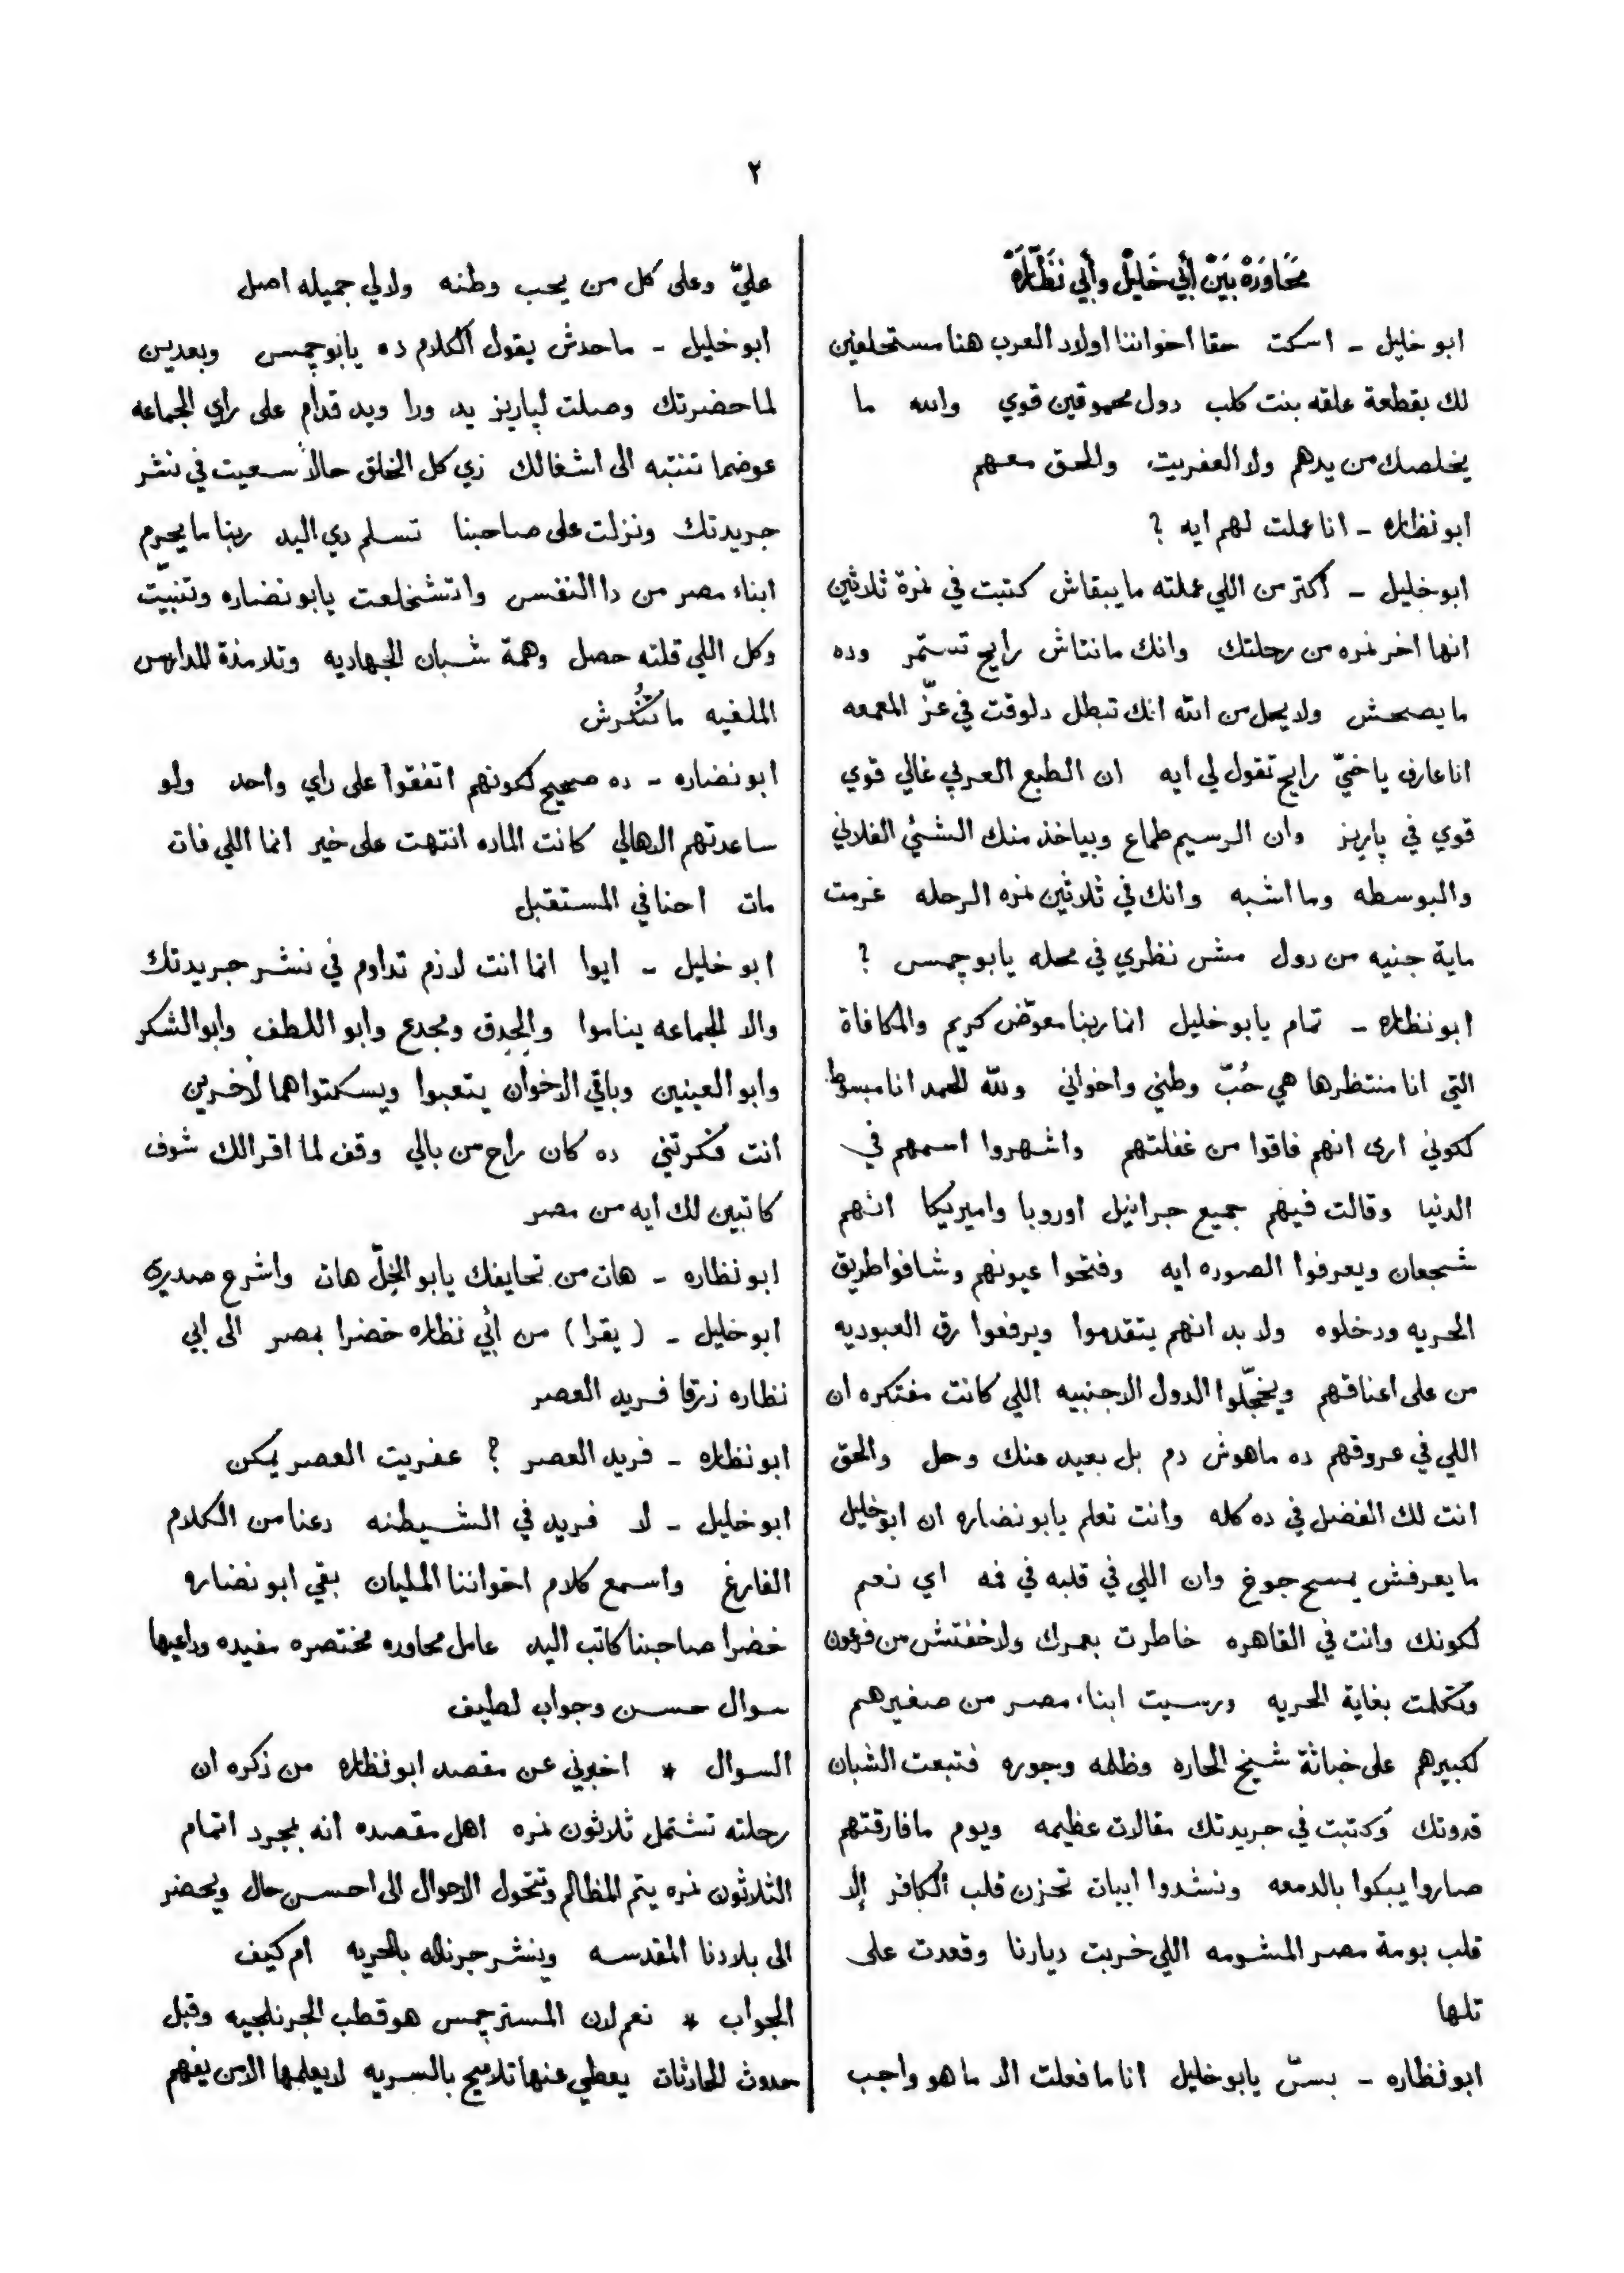 ٢
مُحَاوَرَةْ بَيْنْ أَبِي خَلِيْل وأَبِي نَظَّارَهْ
ابو خليل - اسكت حقا اخواننا اولاد العرب هنا مستحلفين
لك بقطعة علقه بنت كلب دول محموقين قوي والله ما
يخلصك من يدهم ولا العفريت والحق معهم
ابو نظاره - انا عملت لهم ايه ؟
ابو خليل - اكتر من اللي عملته ما يبقاش كتبت في نمرة ثلاثين
انها اخر نمره من رحلتك وانك مانتاش رايح تستمر وده
ما يصحش ولا يحل من الله انك تبطل دلوقت في عزّ المعمعه
انا عارف يا خيّ رايح تقول لي ايه ان الطبع العربي غالي قوي
قوي في پاريز وان الرسيم طماع وبياخذ منك الشئ الفلاني
والبوسطه وما اشبه وانك في ثلاثين نمره الرحله غرمت
ماية جنيه من دول مش نظري في محله يابو چمس ؟
ابو نظاره - تمام يابو خليل انما ربنا معوّض كريم والمكافاة
التي انا منتظرها هي حُبّ وطني واخواني ولله الحمد انا مبسوط
لكوني ارى انهم فاقوا من غفلتهم واشهروا اسمهم في
الدنيا وقالت فيهم جميع جرانيل اوروبا واميريكا انهم
شجعان ويعرفوا الصوره ايه وفتحوا عيونهم وشافوا طريق
الحريه ودخلوه ولا بد انهم يتقدموا ويرفعوا رق العبوديه
من على اعناقهم ويخجّلوا الدول الاجنبيه اللي كانت مفتكره ان
اللي في عروقهم ده ماهوش دم بل بعيد عنك وحل والحق
انت لك الفضل في ده كله وانت تعلم يابو نضاره ان ابو خليل
ما يعرفش يمسح جوخ وان اللي في قلبه في فمه اي نعم
لكونك وانت في القاهره خاطرت بعمرك ولا خفتش من فرعون
وتكلمت بغاية الحريه ورسيت ابناء مصر من صغيرهم
لكبيرهم على خباثة شيخ الحاره وظلمه وجوره فتبعت الشبان
قدوتك وكتبت في جريدتك مقالات عظيمه ويوم ما فارقتهم
صاروا يبكوا بالدمعه ونشدوا ابيات تحزن قلب الكافر إلا
قلب بومة مصر المشومه اللي خربت ديارنا وقعدت على
تلها
ابو نظاره - بسّ يابو خليل انا ما فعلت الا ما هو واجب
عليّ وعلى كل من يحب وطنه ولا لي جميله اصل
ابو خليل - ماحدش يقول الكلام ده يابو چمس وبعدين
لما حضرتك وصلت لپاريز يد ورا ويد قدام على راي الجماعه
عوضما تنتبه الى اشغالك زي كل الخلق حالاً سعيت في نشر
جريدتك ونزلت على صاحبنا تسلم دي اليد ربنا ما يحرم
ابناء مصر من دا النفس واتشخلعت يابو نضاره وتنبيّت
وكل اللي قلته حصل وهمة شبان الجهاديه وتلامذة المدارس
الملغيه ما تُنْكرش
ابو نضاره - ده صحيح لكونهم اتفقوا على راي واحد ولو
ساعدتهم الاهالي كانت الماده انتهت على خير انما اللي فات
مات احنا في المستقبل
ابو خليل - ايوا انما انت لازم تداوم في نشر جريدتك
والا الجماعه يناموا والجدق ومجدع وابو اللطف وابو الشكر
وابو العينين وباقي الاخوان يتعبوا ويسكتوا هما لاخرين
انت فكرتني ده كان راح من بالي وقف لما اقرالك شوف
كاتبين لك ايه من مصر
ابو نظاره - هات من تحايفك يابو الخِلّ هات واشرح صدري
ابو خليل - ( يقرا ) من أبي نظاره خضرا بمصر الى ابي
نظاره زرقا فريد العصر
ابو نظاره - فريد العصر ؟ عفريت العصر يمكن
ابو خليل - لا فريد في الشيطنه دعنا من الكلام
الفارغ واسمع كلام اخواننا المليان بقي ابو نضاره
خضرا صاحبنا كاتب اليد عامل محاوره مختصره مفيده وداعيها
سوال حسن وجواب لطيف
السوال * اخبرني عن مقصد ابو نظاره من ذكره ان
رحلته تشتمل ثلاثون نمره اهل مقصده انه بمجرد اتمام
الثلاثون نمره يتم المظالم وتتحول الاحوال الى احسن حال ويحضر
الى بلادنا المقدسه وينشر جرناله بالحريه ام كيف
الجواب * نعم لان المستر چمس هو قطب الجرنلجيه وقبل
حدوث الحادثات يعطي عنها تلاميح بالسريه لا يعلمها الا من يفهم